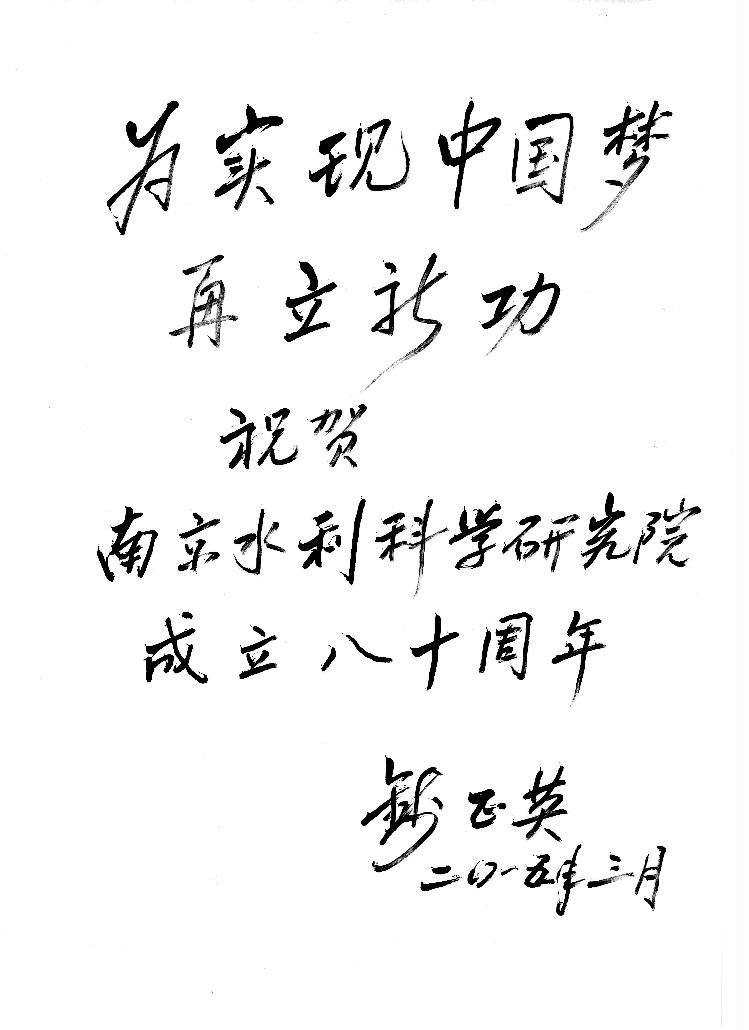 为实现中国梦
再立新功
祝贺
南京水利科学研究院
成立八十周年
钱正英
二〇一五年三月